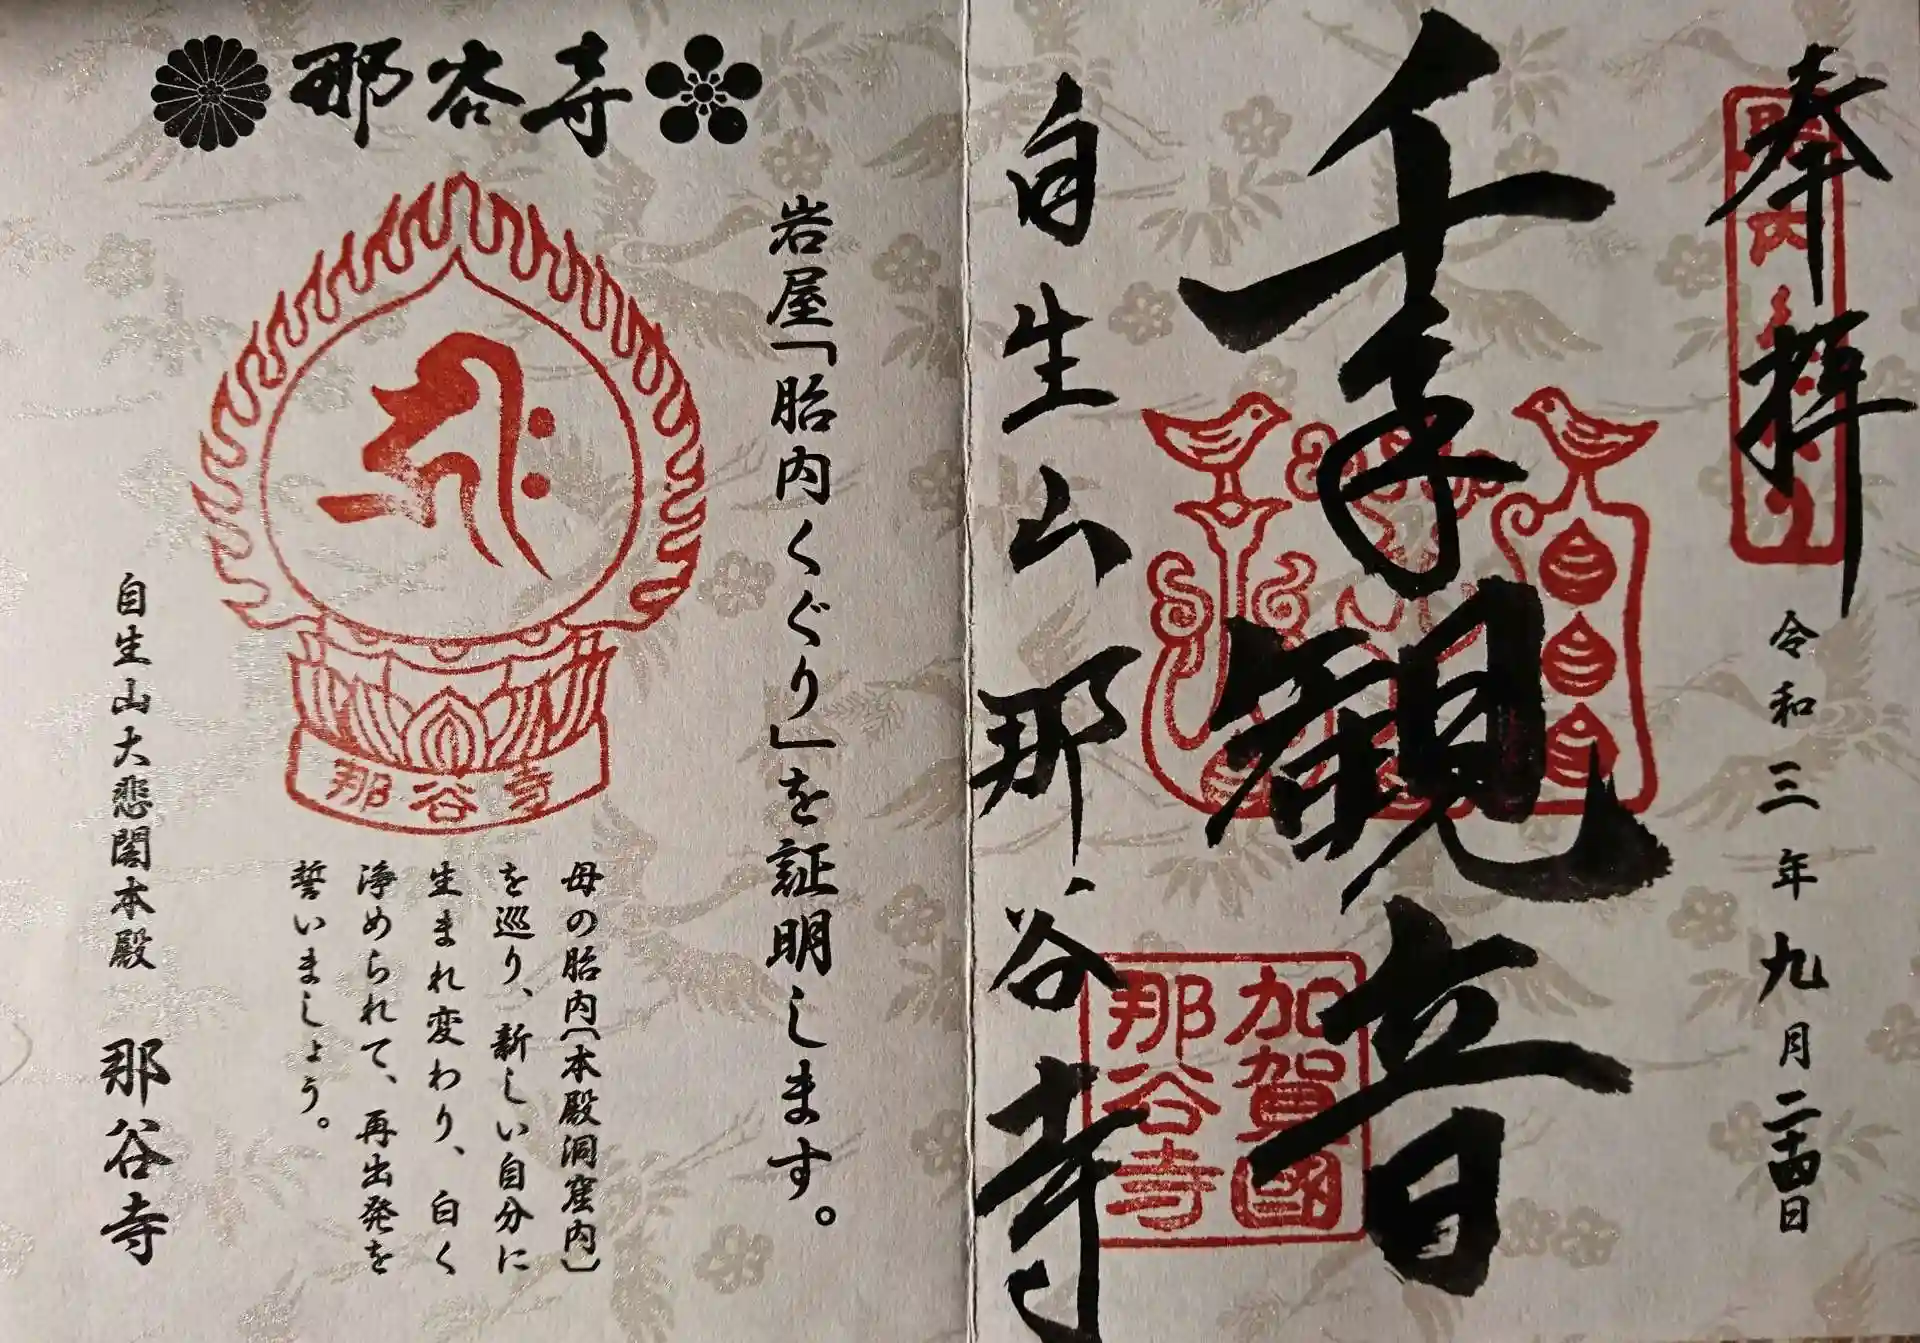 奉拝
令和三年九月二十四日
千手観音
自生山那谷寺
加賀國
那谷寺
那谷寺
岩屋「胎内くぐり」を証明します。
那谷寺
母の胎内〔本殿洞窟内〕
を巡り、新しい自分に
生まれ変わり、白く
浄められて、再出発を
誓いましょう。
自生山大悲閣本殿　那谷寺